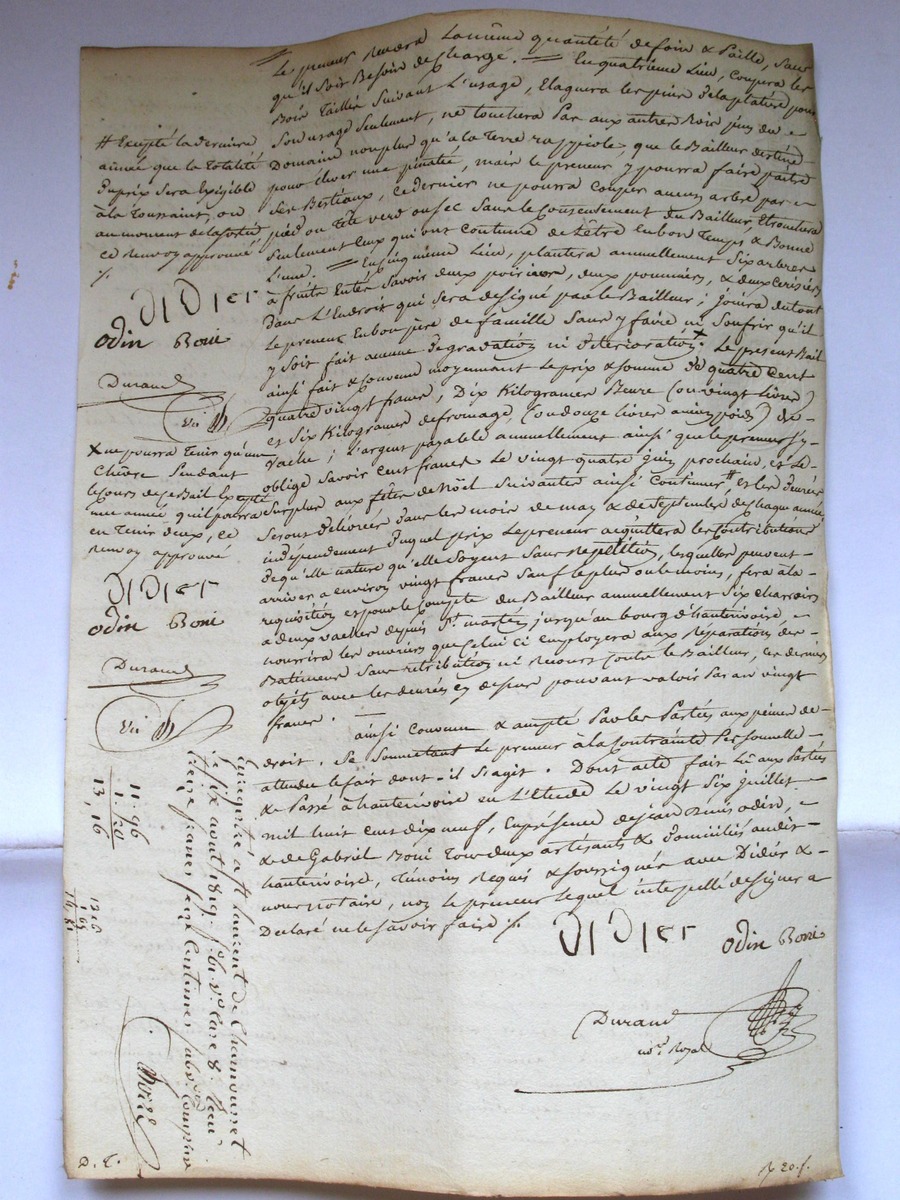 Le preneur rendra la même quantité de foin & Paille, sans
qu'il soit Besoin de Charge. = En quatrième Lieu, Coupera les
Bois Taillis Suivant L'usage, Elaguera les pins delaplatière pour
Son usage Seulement, ne touchera Pas aux autres Bois pins du
Domaine nonplus qu'à la Terre que le Bailleur destine
pour élever une pinatée, mais le preneur y pourra faire paitre
Ses Bestiaux, Ce dernier ne pourra Couper aucun arbre par
pied ou Tête verd ou sec Sans le Consentement du Bailleur, Etronchera
Seulement Ceux qui ont Coutume de Letre En bon Temps & Bonne
Lune. = En cinquième Lieu, plantera annuellement Six arbres
à fruits Entés Savoir deux poiriers, deux pommiers, & deux Cerisiers
Dans L'Endroit qui Sera désigné par le Bailleur; jouira du tout
Le preneur En bon père de famille Sans y faire ni Soufrir qu'il
y Soit fait aucune Degradation ni déterioration. X Le present Bail
ainsi fait & Convenu moyennant Le prix & Somme De quatre Cent
quatre vingt francs, Dix Kilogrames Beure (ou vingt Livres)
et Six Kilogrames de fromage, (ou douze Livres ancien poids) de
Vache; L'argent payable annuellement ainsi que le preneur s'y
oblige Savoir Cent francs Le vingt quatre juin prochain, et Le
Surplus aux fêtes de Noël Suivantes ainsi Continuer # et les denrées
Seront délivrées dans les mois de may & de Septembre de Chaque année
indépendament Duquel prix Le preneur acquittera les Contributions
De qu'elle nature qu'elle Soyent Sans répétition, lesquelles peuvent
arriver a environ vingt francs Sauf le plus ou le moins, fera à la
requisition et pour le Compte du Bailleur annuellement Six Charrois
a deux vaches depuis St. martin jusqu'au bourg d'hauterivoire,
nourrira les ouvriers que Celui ci Employera aux Réparations des
Batimens Sans rétribution ni recours Contre le Bailleur, Ces derniers
objets avec les denrées cy dessus pouvant valoir Par an vingt
francs.
ainsi Convenu & accepté Par les Parties aux peines de
droit. Se Soumettant Le preneur à la Contrainte Personnelle
attendu le fait dont-il S'agit. Dont acte fait Lu aux Parties
& Passé à hauterivoire en L'étude Le vingt Six juillet
mil huit Cent dix neuf, En présence de jean Odin,
& de Gabriel Boni Tous deux artisants & Domiciliés audit
hauterivoire, Témoins Requis & Soussignés avec Didier &
nous notaire, non Le preneur Lequel interpellé de Signer a
Declaré ne le Savoir faire ./.
DIDIER
Odin Boni
Durand
not.e Royal
# Excepté la dernière
année que la totalité
Du prix Sera Exigible
à la Toussaint, ou
au moment de la Sortie
ce renvoy approuvé
./.
DIDIER
Odin Boni
Durand
X ne pourra Tenir qu'une
Chèvre Pendant
le Cours de ce Bail Excepté
une année qu'il pourra
en Tenir deux, Ce
renvoy approuvé
DIDIER
Odin Boni
Durand
11.96
1.20
13,16
Enregistré à St Laurent de Chamousset
le six aout 1819. f° Case 8. Reçu
treize francs seize Centimes Subv.on Comprise
D. L.
20. f.